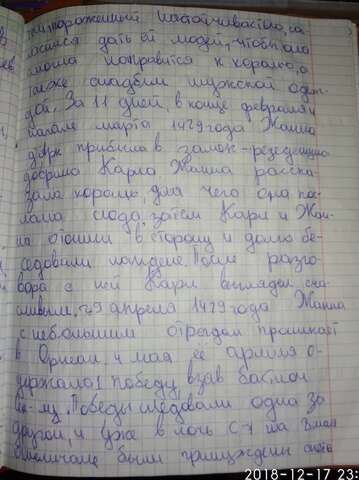 поражённый настойчивостью, со
ился дать ей людей, чтобы она
смогла направится к королю, а
также снабдил мужской одеж
дой. За 11 дней в конце февраля и
начале марта 1429 года Жанна
д'Арк прибыла в замок-резиденцию
дофина Карла. Жанна расска
зала королю, для чего она пос
лана сюда, затем Карл и Жан
на отошли в сторону и долго бе
седовали наедине. После разго
вора с ней Карл выглядел сча
стливым. 29 апреля 1429 года Жанна
с небольшим отрядом проникает
в Орлеан. 4 мая её армия о
держала 1 победу, взяв бастион
Победы следовали одна за
другой, и уже в ночь с 7 на 8 мая
англичане были принуждены снять
2018-12-17 23: